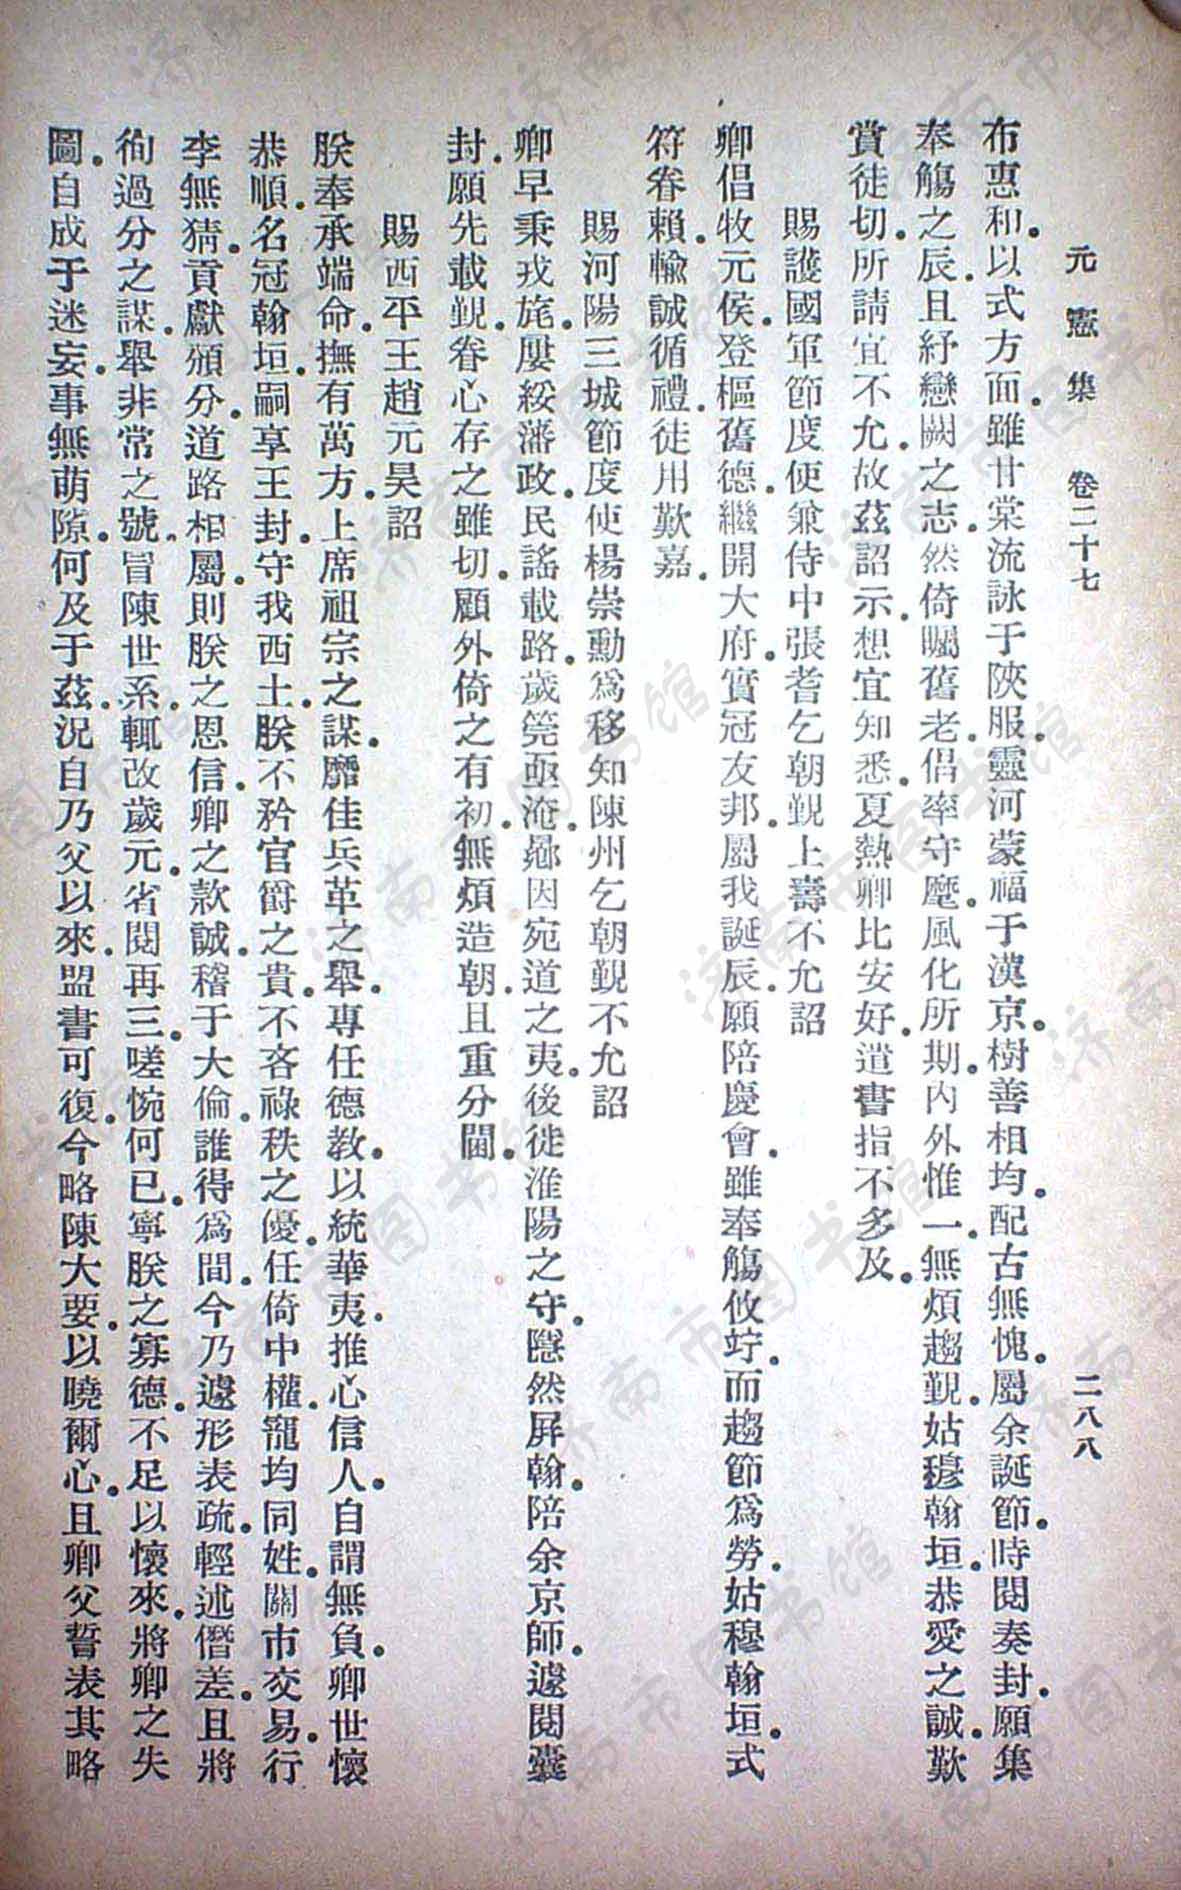 元憲集　卷二十七　二八八
布惠和.以式方面.雖甘棠流詠于陝服.靈河蒙福于漢京.樹善相均.配古無愧.屬余誕節.時閱奏封.願集
奉觴之辰.且紓戀闕之志.然倚矚舊老.倡率守麾.風化所期.內外惟一.無煩趨覲.姑穆翰垣.恭愛之誠.歎
賞徒切.所請宜不允.故茲詔示.想宜知悉.夏熱卿比安好.遣書指不多及.
賜護國軍節度使兼侍中張耆乞朝覲上壽不允詔
卿倡牧元侯.登樞舊德.繼開大府.實冠友邦.屬我誕辰.願陪慶會.雖奉觴攸竚.而趨節爲勞.姑穆翰垣.式
符眷賴.輸誠循禮.徒用歎嘉.
賜河陽三城節度使楊崇勳爲移知陳州乞朝覲不允詔
卿早秉戎旄.屢綏藩政.民謠載路.歲筦亟淹.曏因宛道之夷.後徙淮陽之守.隱然屏翰.陪余京師.遽閱囊
封.願先載覲.眷心存之雖切.顧外倚之有初.無煩造朝.且重分閫.
賜西平王趙元昊詔
朕奉承端命.撫有萬方.上席祖宗之謀.靡佳兵革之舉.專任德教.以統華夷.推心信人.自謂無負.卿世懷
恭順.名冠翰垣.嗣享王封.守我西土.朕不矜官爵之貴.不吝祿秩之優.任倚中權.寵均同姓.關市交易.行
李無猜.貢獻頒分.道路相屬.則朕之恩信.卿之款誠.稽于大倫.誰得爲間.今乃遽形表疏.輕述僭差.且將
徇過分之謀.舉非常之號.冒陳世系.輒改歲元.省閱再三.嗟惋何已.寧朕之寡德.不足以懷來.將卿之失
圖.自成于迷妄.事無萌隙.何及于茲.況自乃父以來.盟書可復.今略陳大要.以曉爾心.且卿父誓表其略